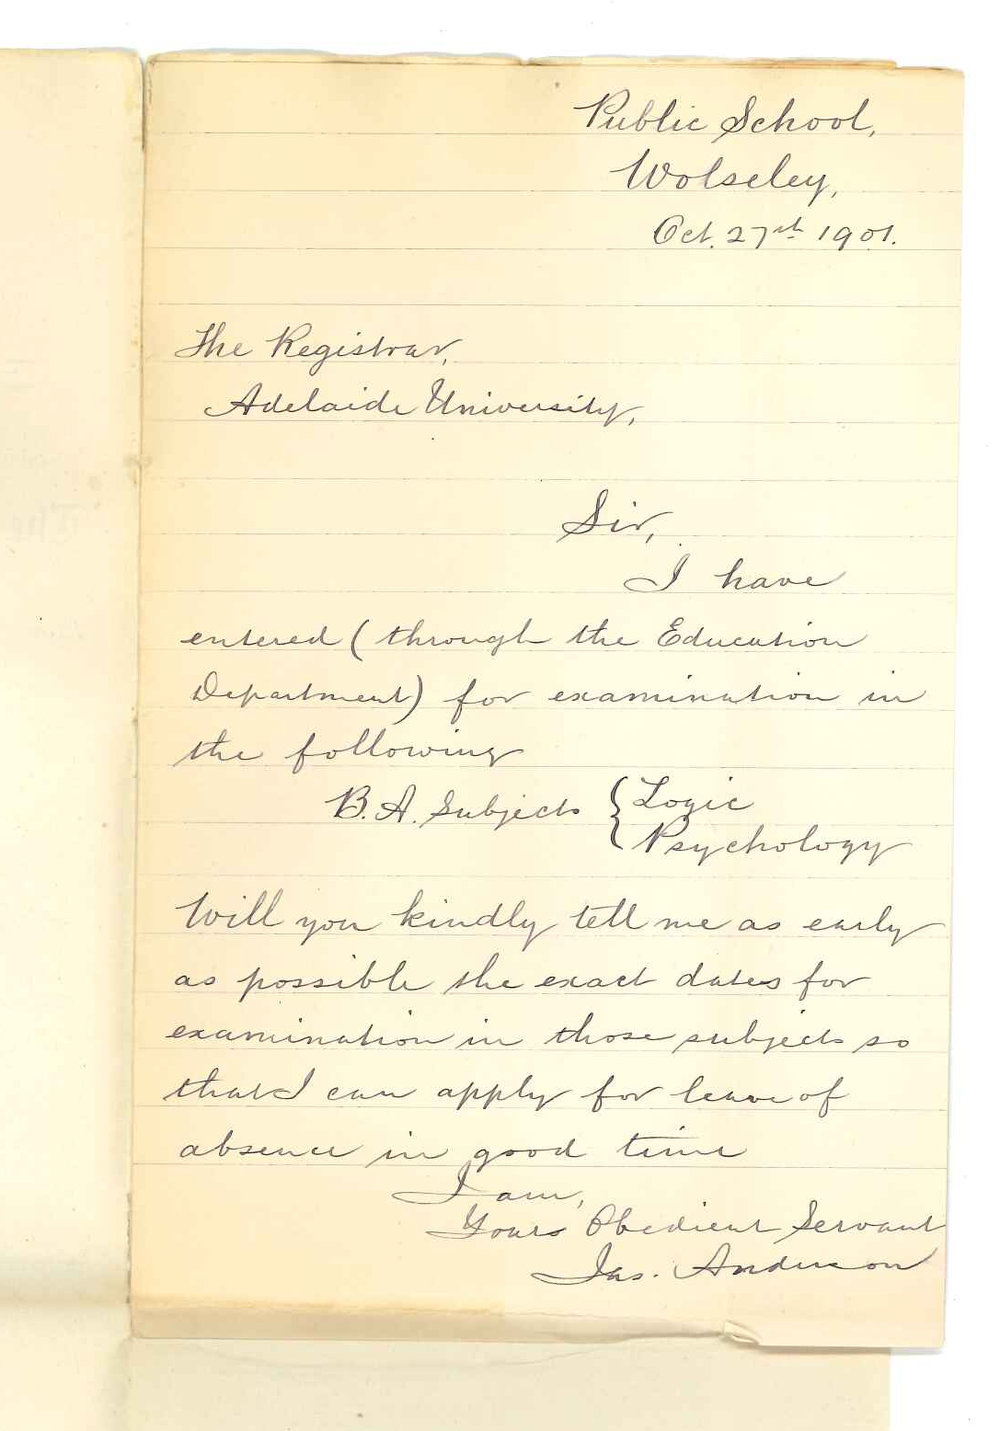 Public School,
Wolseley,
Oct. 27st 1901.
The Registrar,
Adelaide University,
Sir,
I have
entered (through the Education
Department) for examination in
the following
B.A. Subjects { Logic
Psychology
Will you kindly tell me as early
as possible the exact dates for
examination in those subjects so
that I can apply for leave of
absence in good time
I am,
Yours Obedient Servant
Jas. Anderson